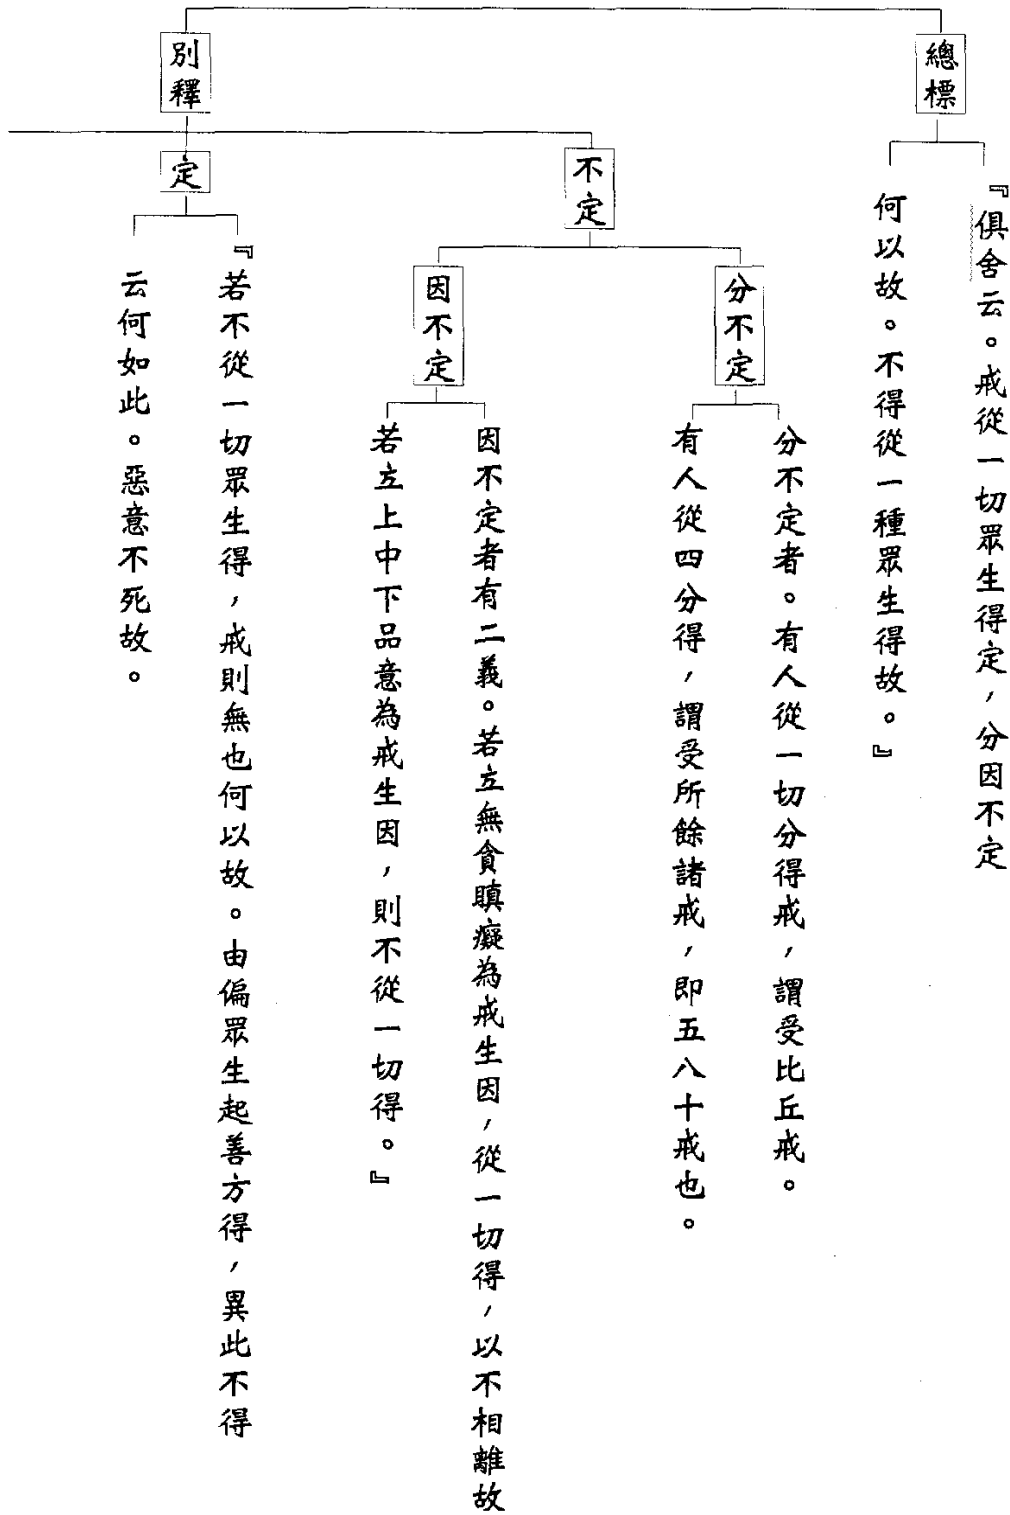 總標
『俱舍云。戒從一切眾生得定，分因不定
何以故。不得從一種眾生得故。』
別釋
不定
分不定
分不定者。有人從一切分得戒，謂受比丘戒。
有人從四分得，謂受所餘諸戒，即五八十戒也。
因不定
因不定者有二義。若立無貪瞋癡為戒生因，從一切得，以不相離故
若立上中下品意為戒生因，則不從一切得。』
定
『若不從一切眾生得，戒則無也何以故。由偏眾生起善方得，異此不得
云何如此。惡意不死故。